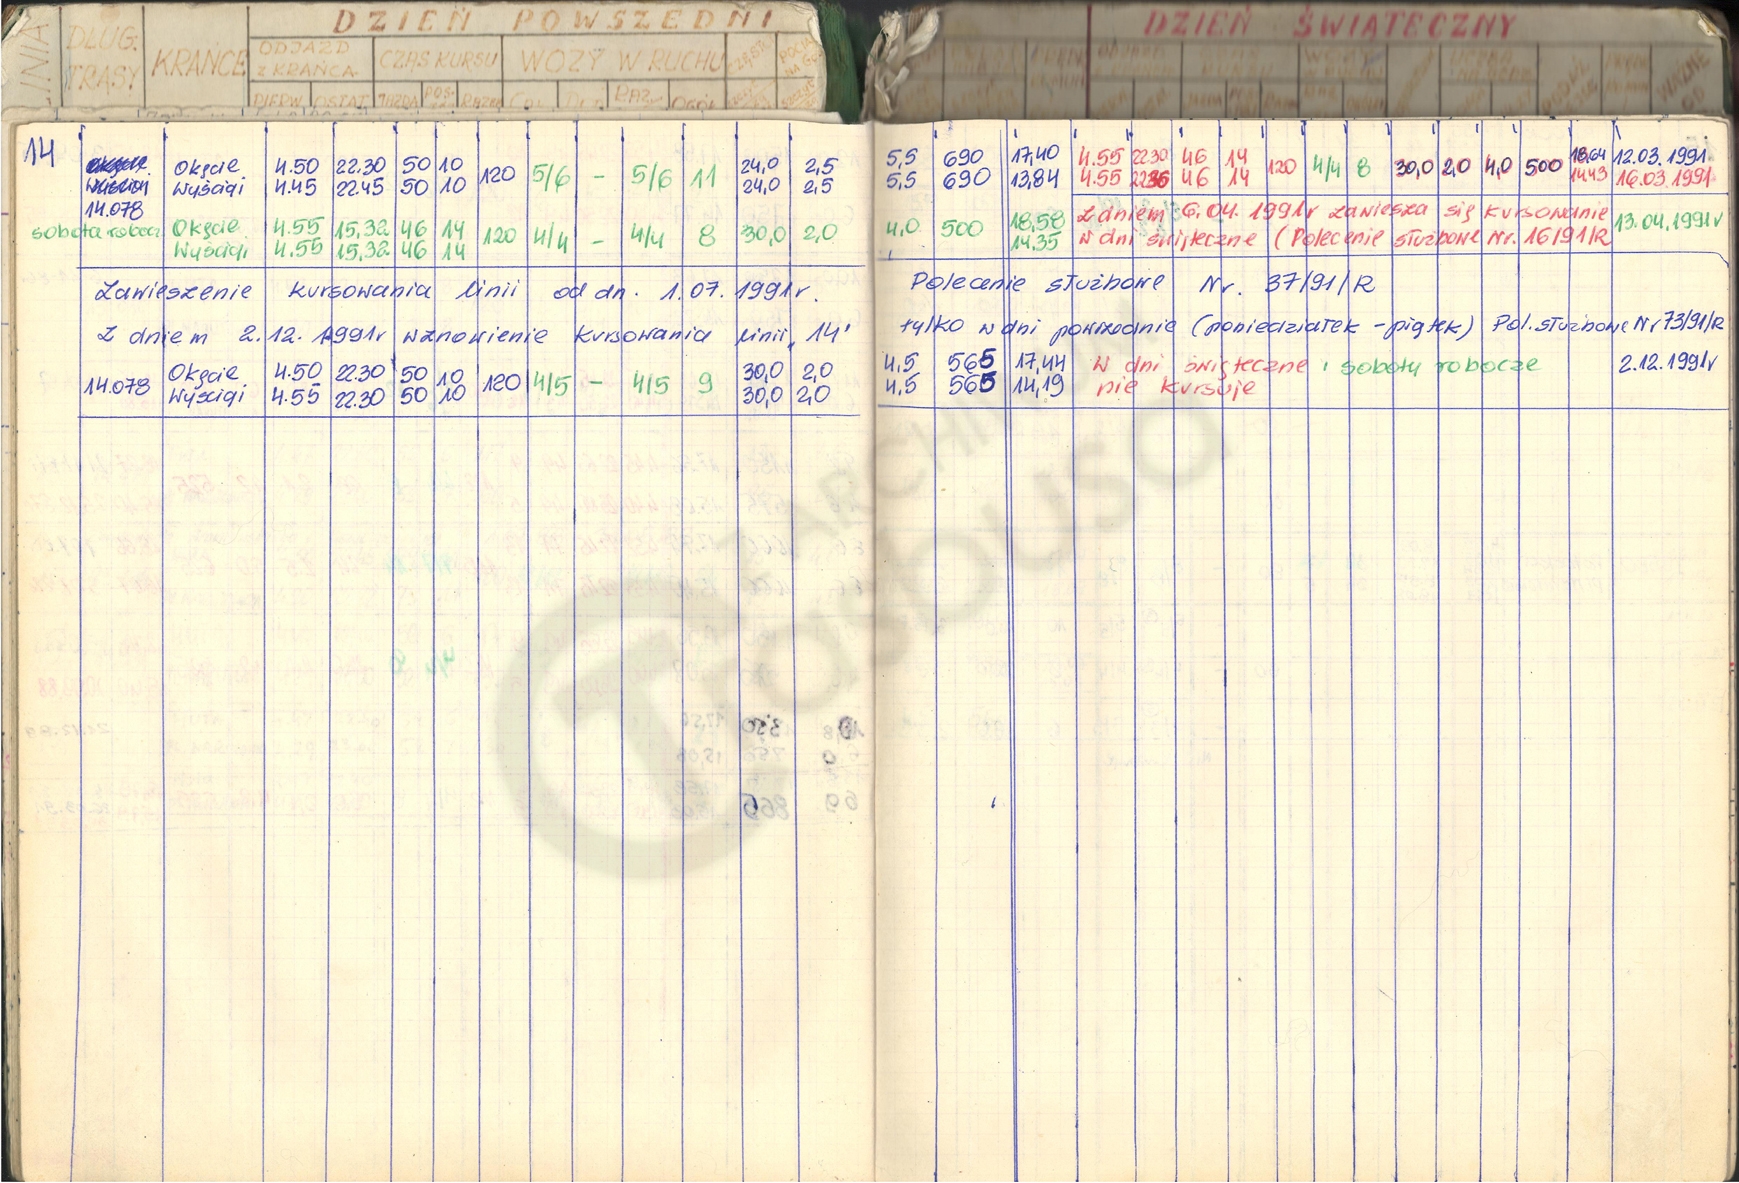 LINIA DŁUG. TRASY KRAŃCE DZIEŃ POWSZEDNI
ODJAZD Z KRAŃCA CZAS KURSU WOZY W RUCHU
PIERW. OSTAT. JAZDA POS- RAZEM
DZIEŃ ŚWIĄTECZNY
WAŻNE OD
14 Okęcie 4.50 22.30 50 10 120 5/6 – 5/6 11 24,0 2,5 5,5 690 17,40 4.55 22.30 46 14 120 4/4 8 30,0 2,0 4,0 500 18,64 12.03.1991
Wyścigi 4.45 22.45 50 10 24,0 2,5 5,5 690 13,84 4.55 46 14 14,43 16.03.1991
14.078
sobota robocz. Okęcie 4.55 15.32 46 14 120 4/4 – 4/4 8 30,0 2,0 4,0 500 18,58 Z dniem 6.04.1991r zawiesza się kursowanie 13.04.1991r
Wyścigi 4.55 15.32 46 14 14,35 w dni świąteczne (Polecenie służbowe Nr. 16/91/R
Zawieszenie kursowania linii od dn. 1.07.1991r. Polecenie służbowe Nr. 37/91/R
Z dniem 2.12.1991r wznowienie kursowania linii „14" tylko w dni powszednie (poniedziałek - piątek) Pol. służbowe Nr 73/91/R
14.078 Okęcie 4.50 22.30 50 10 120 4/5 – 4/5 9 30,0 2,0 4,5 565 17,44 w dni świąteczne i soboty robocze 2.12.1991r
Wyścigi 4.55 22.30 50 10 30,0 2,0 4,5 565 14,19 nie kursuje
ARCHIWUM
TOSOUSO